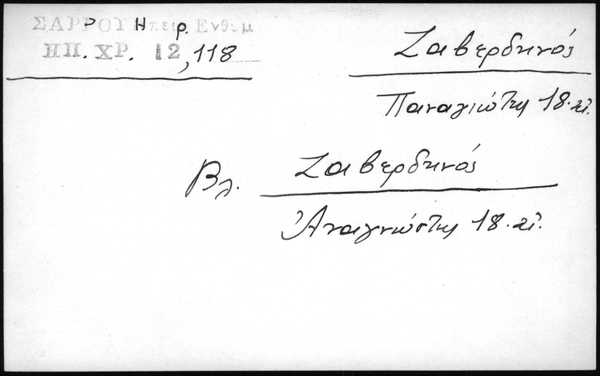 ΣΑΡΡΟΥ Ηπειρ. Ενθυμ
ΗΠ. ΧΡ. 12, 118
Ζαβερδινός
Παναγιώτης 18. αἰ.
Βλ. Ζαβερδινός
Ἀναγνώστης 18. αἰ.